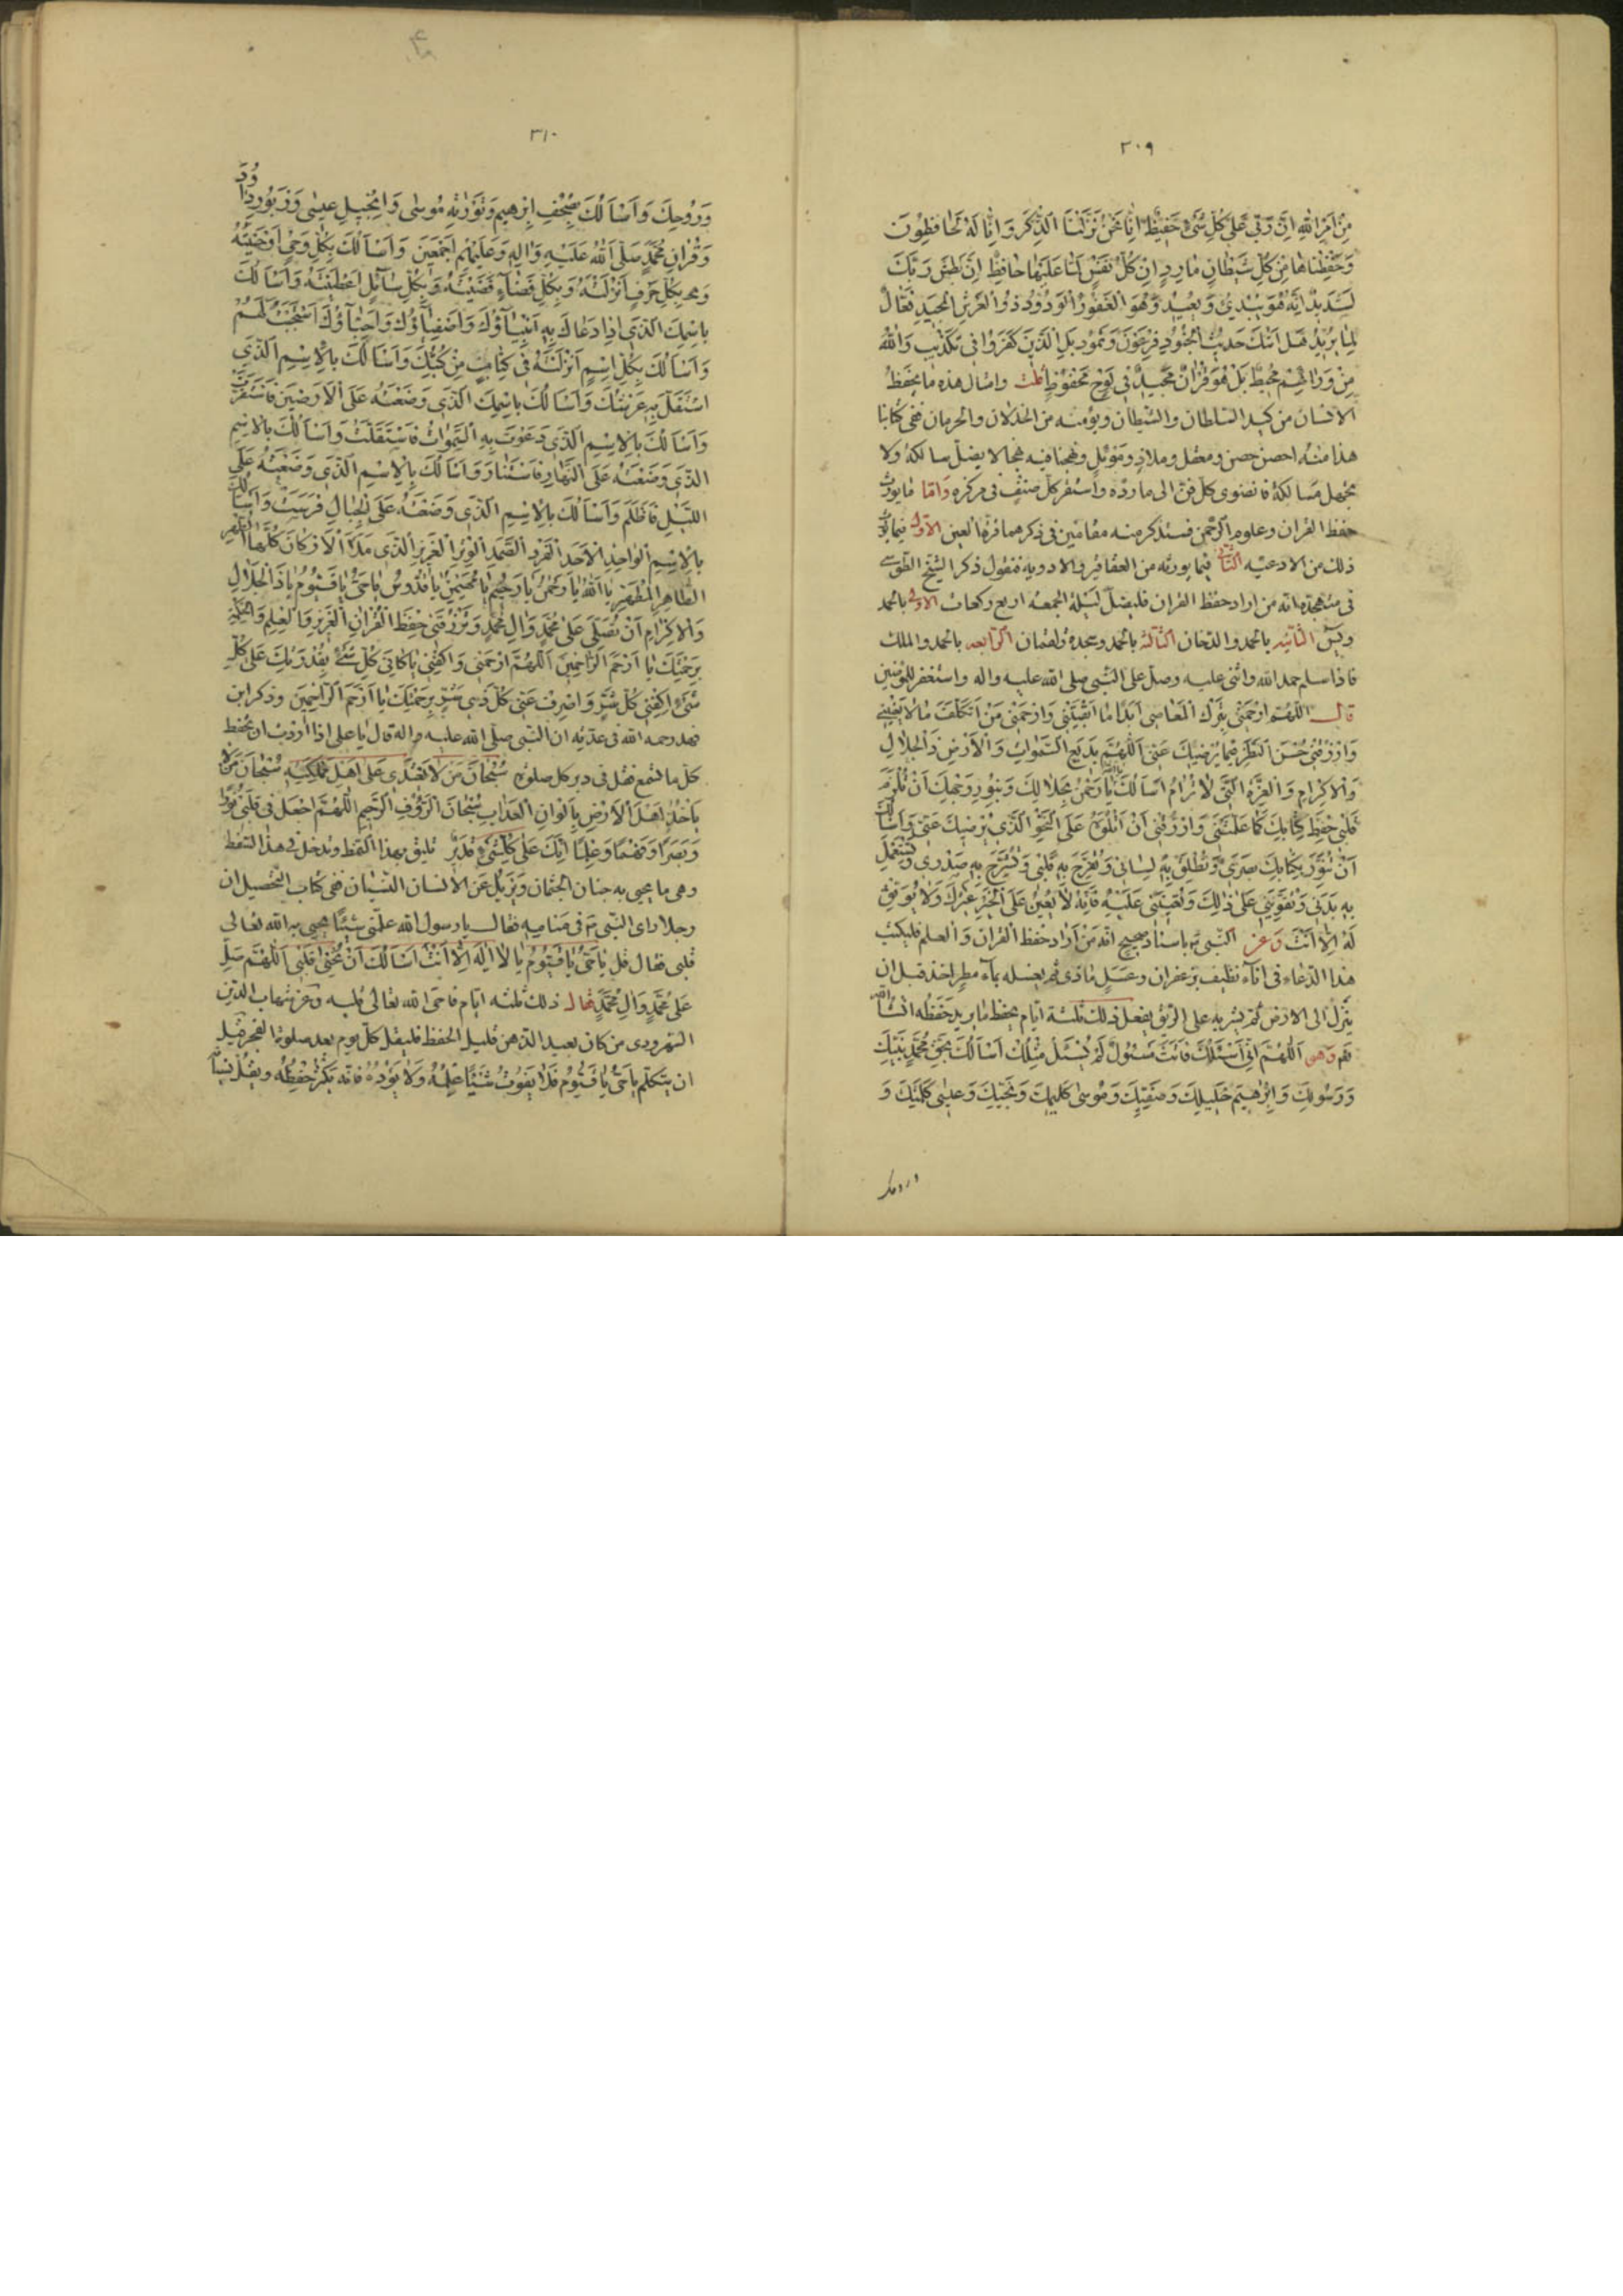 ٣٠٩
مِنْ اَمْرِ اللهِ اِنَّ رَبّى عَلىٰ كُلِّ شَىْءٍ حَفيظٌ اِنّا نَحْنُ نَزَّلْنَا الذِّكْرَ وَاِنّا لَهُ لَحافِظُونَ
وَحَفِظْناها مِنْ كُلِّ شَيْطانٍ مارِدٍ اِنْ كُلُّ نَفْسٍ لَمّا عَلَيْها حافِظٌ اِنَّ بَطْشَ رَبِّكَ
لَشَديدٌ اِنَّهُ هُوَ يُبْدِئُ وَيُعيدُ وَهُوَ الْغَفُورُ الْوَدُودُ ذُو الْعَرْشِ الْمَجيدِ فَعّالٌ
لِما يُريدُ هَلْ اَتٰيكَ حَديثُ الْجُنُودِ فِرْعَوْنَ وَثَمُودَ بَلِ الَّذينَ كَفَرُوا فى تَكْذيبٍ وَاللهُ
مِنْ وَرائِهِمْ مُحيطٌ بَلْ هُوَ قُرْانٌ مَجيدٌ فى لَوْحٍ مَحْفُوظٍ قلت وامثال هذه ما يحفظ
الانسان من كيد السلطان والشيطان ويؤمنه من الخذلان والحرمان ففى كتابنا
هذا منه احصن حصن ومعقل وملاذ وموئل ونهجنا فيه نهجا لا يضل سالكه ولا
يجهل مسالكه فانضوى كل فن الى مارده واستقر كل صنف فى مركزه واما ما يورث
حفظ القران وعلوم الرحمن فسنذكر منه مقامين فى ذكرهما قرة العين الاول فيما يورث
ذلك من الادعيه الثانى فيما يورثه من العقاقير والادويه فنقول ذكر الشيخ الطوسى
فى متهجده انه من اراد حفظ القران فليصل ليلة الجمعه اربع ركعات الاولى بالحمد
ويس الثانيه بالحمد والدخان الثالثه بالحمد وسجدة ولقمان الرابعه بالحمد والملك
فاذا سلم حمد الله واثنى عليه وصلى على النبى صلى الله عليه واله واستغفر للمؤمنين
قال اَللّهُمَّ ارْحَمْنى بِتَرْكِ الْمَعاصى اَبَدًا ما اَبْقَيْتَنى وَارْحَمْنى مِنْ اَنْ اَتَكَلَّفَ ما لا يَعْنينى
وَارْزُقْنى حُسْنَ النَّظَرِ فيما يُرْضيكَ عَنّى اَللّهُمَّ بَديعَ السَّمٰواتِ وَالْاَرْضِ ذَا الْجَلالِ
وَالْاِكْرامِ وَالْعِزَّةِ الَّتى لا تُرامُ اَسْاَلُكَ يا اَللهُ يا رَحْمٰنُ بِجَلالِكَ وَبِنُورِ وَجْهِكَ اَنْ تُلْزِمَ
قَلْبى حِفْظَ كِتابِكَ كَما عَلَّمْتَنى وَارْزُقْنى اَنْ اَتْلُوَهُ عَلَى النَّحْوِ الَّذى يُرْضيكَ عَنّى وَاَسْاَلُكَ
اَنْ تُنَوِّرَ بِكِتابِكَ بَصَرى وَتُطْلِقَ بِهِ لِسانى وَتُفَرِّجَ بِهِ قَلْبى وَتَشْرَحَ بِهِ صَدْرى وَتَسْتَعْمِلَ
بِهِ بَدَنى وَتُقَوِّيَنى عَلىٰ ذٰلِكَ وَتُعينَنى عَلَيْهِ فَاِنَّهُ لا يُعينُ عَلَى الْخَيْرِ غَيْرُكَ وَلا يُوَفِّقُ
لَهُ اِلّا اَنْتَ وعن النبى ص باسناد صحيح انه من اراد حفظ القران والعلم فليكتب
هذا الدعاء فى اناء نظيف بزعفران وعسل ماذى ثم يغسله بماء مطر اخذ قبل ان
ينزل الى الارض ثم يشربه على الريق يفعل ذلك ثلثة ايام يحفظ ما يريد حفظه انشاء الله
تعم وهى اَللّهُمَّ اِنّى اَسْئَلُكَ فَاَنْتَ مَسْئُولٌ لَمْ يُسْئَلْ مِثْلُكَ اَسْاَلُكَ بِحَقِّ مُحَمَّدٍ نَبِيِّكَ
وَرَسُولِكَ وَاِبْرٰهيمَ خَليلِكَ وَصَفِيِّكَ وَمُوسىٰ كَليمِكَ وَنَجِيِّكَ وَعيسىٰ كَلِمَتِكَ وَ
وروحك
٣١٠
وَرُوحِكَ وَاَسْاَلُكَ بِصُحُفِ اِبْرٰهيمَ وَتَوْرٰيةِ مُوسىٰ وَاِنْجيلِ عيسىٰ وَزَبُورِ داوُدَ
وَقُرْانِ مُحَمَّدٍ صَلَّى اللهُ عَلَيْهِ وَالِهِ وَعَلَيْهِمْ اَجْمَعينَ وَاَسْاَلُكَ بِكُلِّ وَحْىٍ اَوْحَيْتَهُ
وَبِكُلِّ حَرْفٍ اَنْزَلْتَهُ وَبِكُلِّ قَضاءٍ قَضَيْتَهُ وَبِكُلِّ سائِلٍ اَعْطَيْتَهُ وَاَسْاَلُكَ
بِاسْمِكَ الَّذى اِذا دَعاكَ بِهِ اَنْبِياؤُكَ وَاَصْفِياؤُكَ وَاَحِبّاؤُكَ اسْتَجَبْتَ لَهُمْ
وَاَسْاَلُكَ بِكُلِّ اِسْمٍ اَنْزَلْتَهُ فى كِتابٍ مِنْ كُتُبِكَ وَاَسْاَلُكَ بِالْاِسْمِ الَّذى
اسْتَقَلَّ بِهِ عَرْشُكَ وَاَسْاَلُكَ بِاسْمِكَ الَّذى وَضَعْتَهُ عَلَى الْاَرَضينَ فَاسْتَقَرَّتْ
وَاَسْاَلُكَ بِالْاِسْمِ الَّذى دَعَوْتَ بِهِ السَّمٰواتِ فَاسْتَقَلَّتْ وَاَسْاَلُكَ بِالْاِسْمِ
الَّذى وَضَعْتَهُ عَلَى النَّهارِ فَاسْتَنارَ وَاَسْاَلُكَ بِالْاِسْمِ الَّذى وَضَعْتَهُ عَلَى
اللَّيْلِ فَاَظْلَمَ وَاَسْاَلُكَ بِالْاِسْمِ الَّذى وَضَعْتَهُ عَلَى الْجِبالِ فَرَسَتْ وَاَسْاَلُكَ
بِالْاِسْمِ الْواحِدِ الْاَحَدِ الْفَرْدِ الصَّمَدِ الْوِتْرِ الْعَزيزِ الَّذى مَلَأَ الْاَرْكانَ كُلَّها الطُّهْرِ
الطّاهِرِ الْمُطَهَّرِ يا اَللهُ يا رَحْمٰنُ يا رَحيمُ يا مُهَيْمِنُ يا قُدُّوسُ يا حَىُّ يا قَيُّومُ يا ذَا الْجَلالِ
وَالْاِكْرامِ اَنْ تُصَلِّىَ عَلىٰ مُحَمَّدٍ وَالِ مُحَمَّدٍ وَتَرْزُقَنى حِفْظَ الْقُرْانِ الْعَزيزِ وَالْعِلْمِ وَالْحِكْمَةِ
بِرَحْمَتِكَ يا اَرْحَمَ الرّاحِمينَ اَللّهُمَّ ارْحَمْنى وَاكْفِنى يا كافِىَ كُلِّ شَىْءٍ بِقُدْرَتِكَ عَلىٰ كُلِّ
شَىْءٍ اِكْفِنى كُلَّ شَرٍّ وَاصْرِفْ عَنّى كُلَّ ذى شَرٍّ بِرَحْمَتِكَ يا اَرْحَمَ الرّاحِمينَ وذكر ابن
فهد رحمه الله فى عدته ان النبى صلى الله عليه واله قال يا على اذا اردت ان تحفظ
كل ما تسمع فقل فى دبر كل صلوة سُبْحانَ مَنْ لا يَعْتَدى عَلىٰ اَهْلِ مَمْلَكَتِهِ سُبْحانَ مَنْ لا
يَأْخُذُ اَهْلَ الْاَرْضِ بِاَلْوانِ الْعَذابِ سُبْحانَ الرَّؤُفِ الرَّحيمِ اَللّهُمَّ اجْعَلْ فى قَلْبى نُورًا
وَبَصَرًا وَفَهْمًا وَعِلْمًا اِنَّكَ عَلىٰ كُلِّ شَىْءٍ قَديرٌ تليق بهذا النمط وتدخل فى هذا السفط
وهى ما يحيى به جنان الجثمان ويزيل عن الانسان النسيان ففى كتاب التحصيل ان
رجلا راى النبى ص فى منامه فقال يا رسول الله علمنى شيئا يحيى به الله تعالى
قلبى فقال قل يا حَىُّ يا قَيُّومُ يا لا اِلٰهَ اِلّا اَنْتَ اَسْاَلُكَ اَنْ تُحْيِىَ قَلْبى اَللّهُمَّ صَلِّ
عَلىٰ مُحَمَّدٍ وَالِ مُحَمَّدٍ فقال ذلك ثلثه ايام فاحى الله تعالى قلبه وعن شهاب الدين
السهروردى من كان بعيد الذهن قليل الحفظ فليقل كل يوم بعد صلوة الفجر قبل
ان يتكلم يا حَىُّ يا قَيُّومُ فَلا يَفُوتُ شَيْئًا عِلْمُهُ وَلا يَؤُدُهُ فانه يكثر حفظه ويقل نسيانه